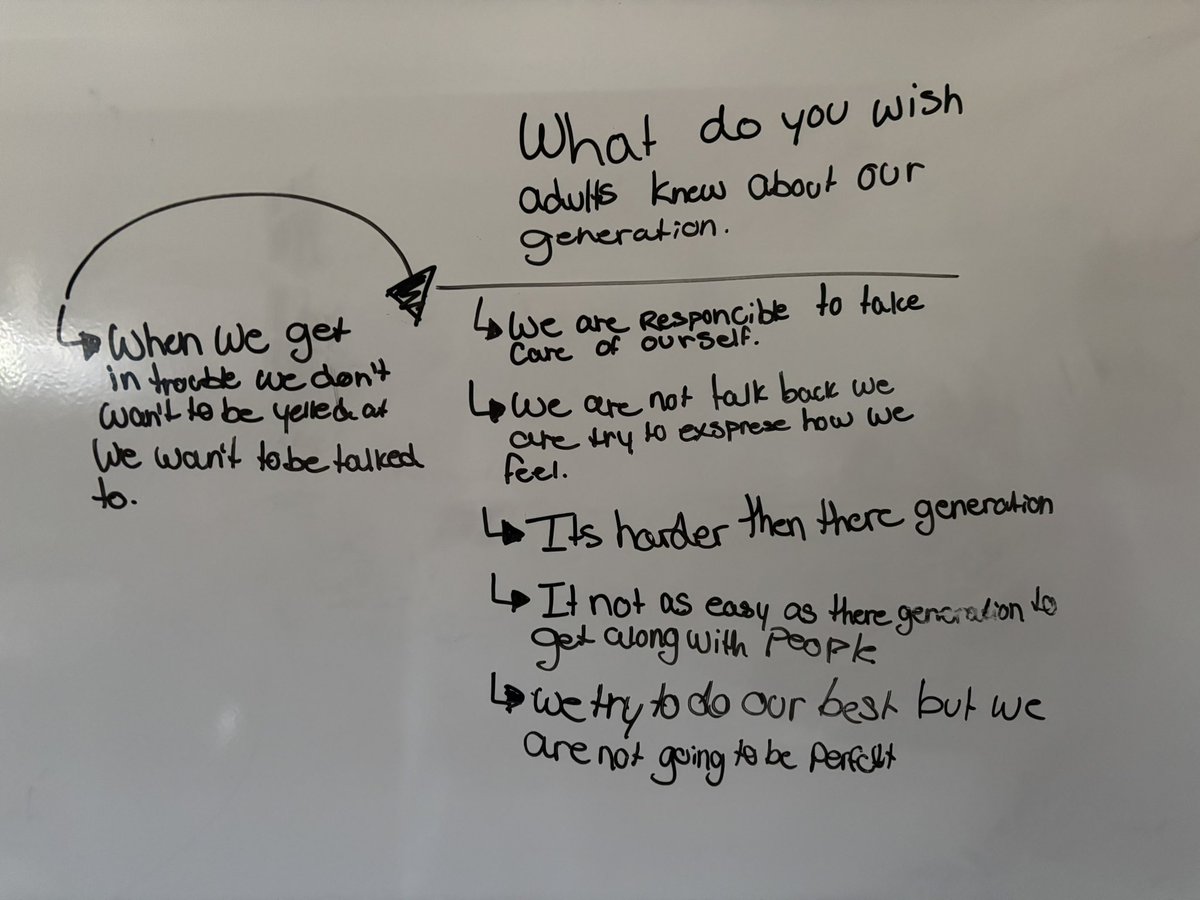 What do you wish
adults knew about our
generation.
When we get
in trouble we don't
wan't to be yelled at
We wan't to be talked
to.
We are Responcible to take
care of ourself.
We are not talk back we
are try to exsprese how we
feel.
Its harder then there generation
It not as easy as there generation to
get along with People
we try to do our best but we
are not going to be Perfect